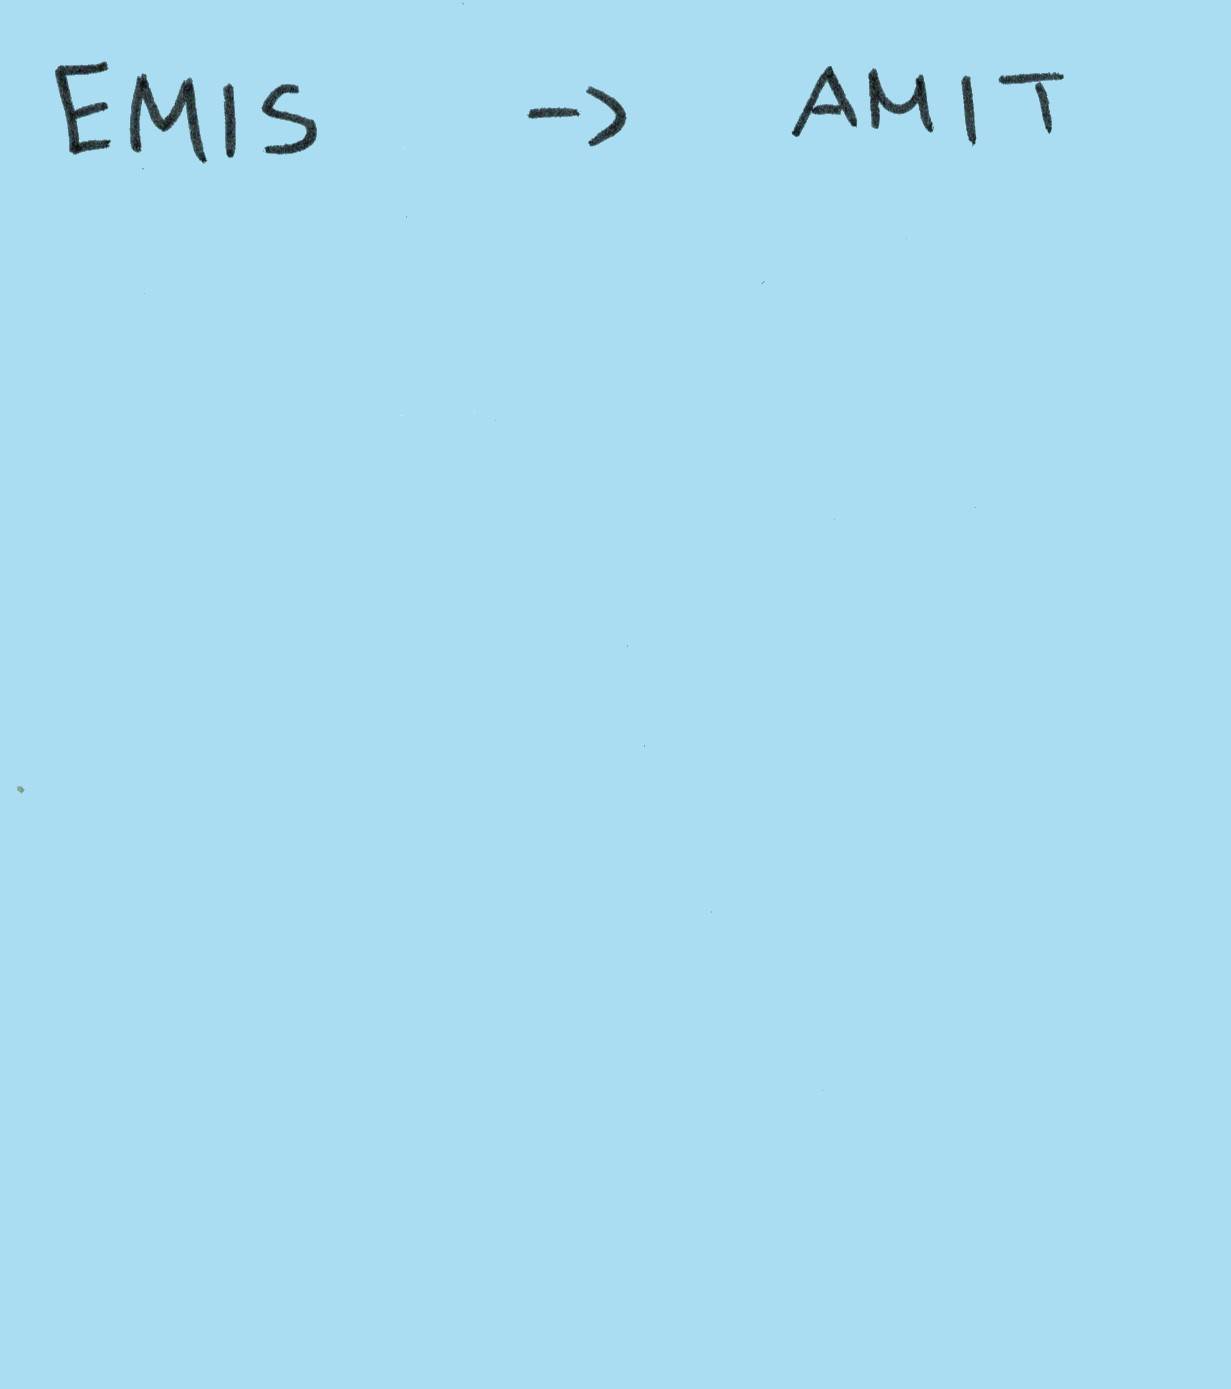 EMIS -> AMIT